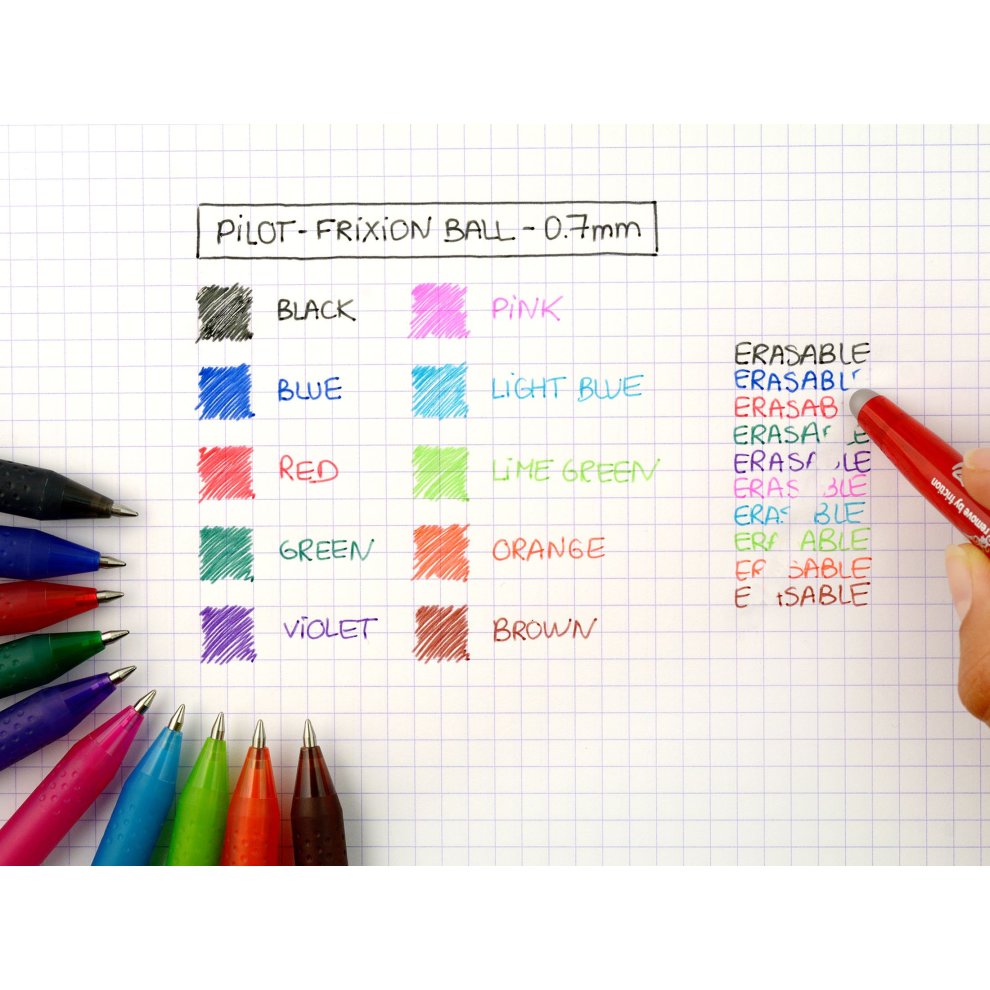 PiLOT-FRiXiON BALL-0.7mm
BLACK
BLUE
RED
GREEN
ViOLET
PiNK
LiGHT BLUE
LiME GREEN
ORANGE
BROWN
ERASABLE
ERASABL
ERASAB
ERASA E
ERAS LE
ERAS BLE
ERAS BLE
ER ABLE
E SABLE
E SABLE
remove by friction